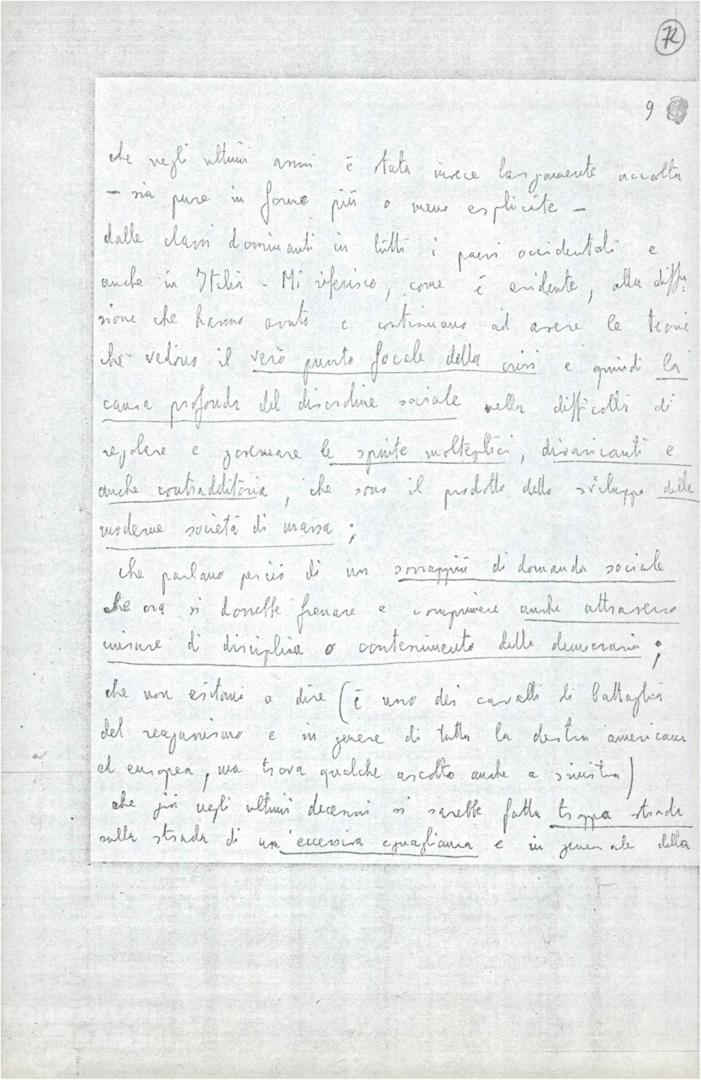 72
9
che negli ultimi anni è stata invece largamente accolta
– sia pure in forme più o meno esplicite –
dalle classi dominanti in tutti i paesi occidentali e
anche in Italia – Mi riferisco, come è evidente, alla diffu-
sione che hanno avuto e continuano ad avere le teorie
che vedono il vero punto focale della crisi e quindi la
causa profonda del disordine sociale nella difficoltà di
regolare e governare le spinte molteplici, divaricanti e
anche contraddittorie, che sono il prodotto dello sviluppo delle
moderne società di massa;
che parlano perciò di un sovrappiù di domanda sociale
che ora si dovrebbe frenare e comprimere anche attraverso
misure di disciplina o contenimento della democrazia;
che non esitano a dire (è uno dei cavalli di battaglia
del reaganismo e in genere di tutta la destra americana
ed europea, ma trova qualche ascolto anche a sinistra)
che già negli ultimi decenni si sarebbe fatta troppa strada
sulla strada di un'eccessiva eguaglianza e in generale della